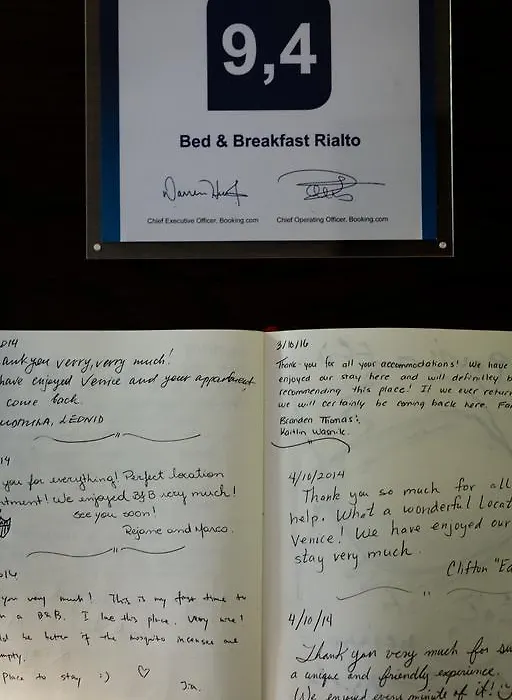 9,4
Bed & Breakfast Rialto
Chief Executive Officer, Booking.com
Chief Operating Officer, Booking.com
ank you verry, verry much!
have enjoyed Venice and your appartament
come back
LEONID
14
you for everything! Perfect location
tment! We enjoyed B&B very much!
see you soon!
Rejane and Marco.
you very much! This is my first time to
n a B&B. I like this place. Very nice!
ld be better if the mosquito incenses are
empty.
Place to stay :) ♡
3/10/16
Thank you for all your accommodations! We have
enjoyed our stay here and will definitley b
recommending this place! If we ever retur
we will certainly be coming back here. Fo
Branden Thomas &
Kaitlin Wasnik.
4/10/2014
Thank you so much for all
help. What a wonderful locat
Venice! We have enjoyed our
stay very much.
Clifton "Ea
4/10/14
Thank you very much for su
a unique and friendly experience.
We enjoyed every minute of it!